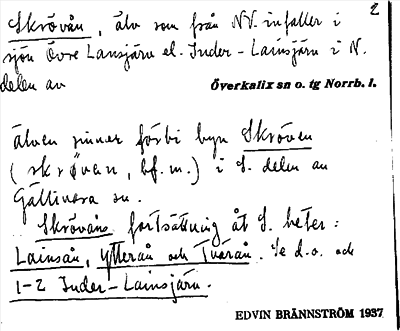 2
Skrövån, älv som från NV. infaller i
sjön Övre Lansjärv el. Inder-Lainsjärv i N.
delen av Överkalix sn o. tg Norrb. l.
älven rinner förbi byn Skröven
(skrövan, bf. m.) i S. delen av
Gällivara sn.
Skrövåns fortsättning åt S. heter:
Lainsån, Ytterån och Tvärån. Se d.o. och
1-2 Inder-Lainsjärv.
EDVIN BRÄNNSTRÖM 1937